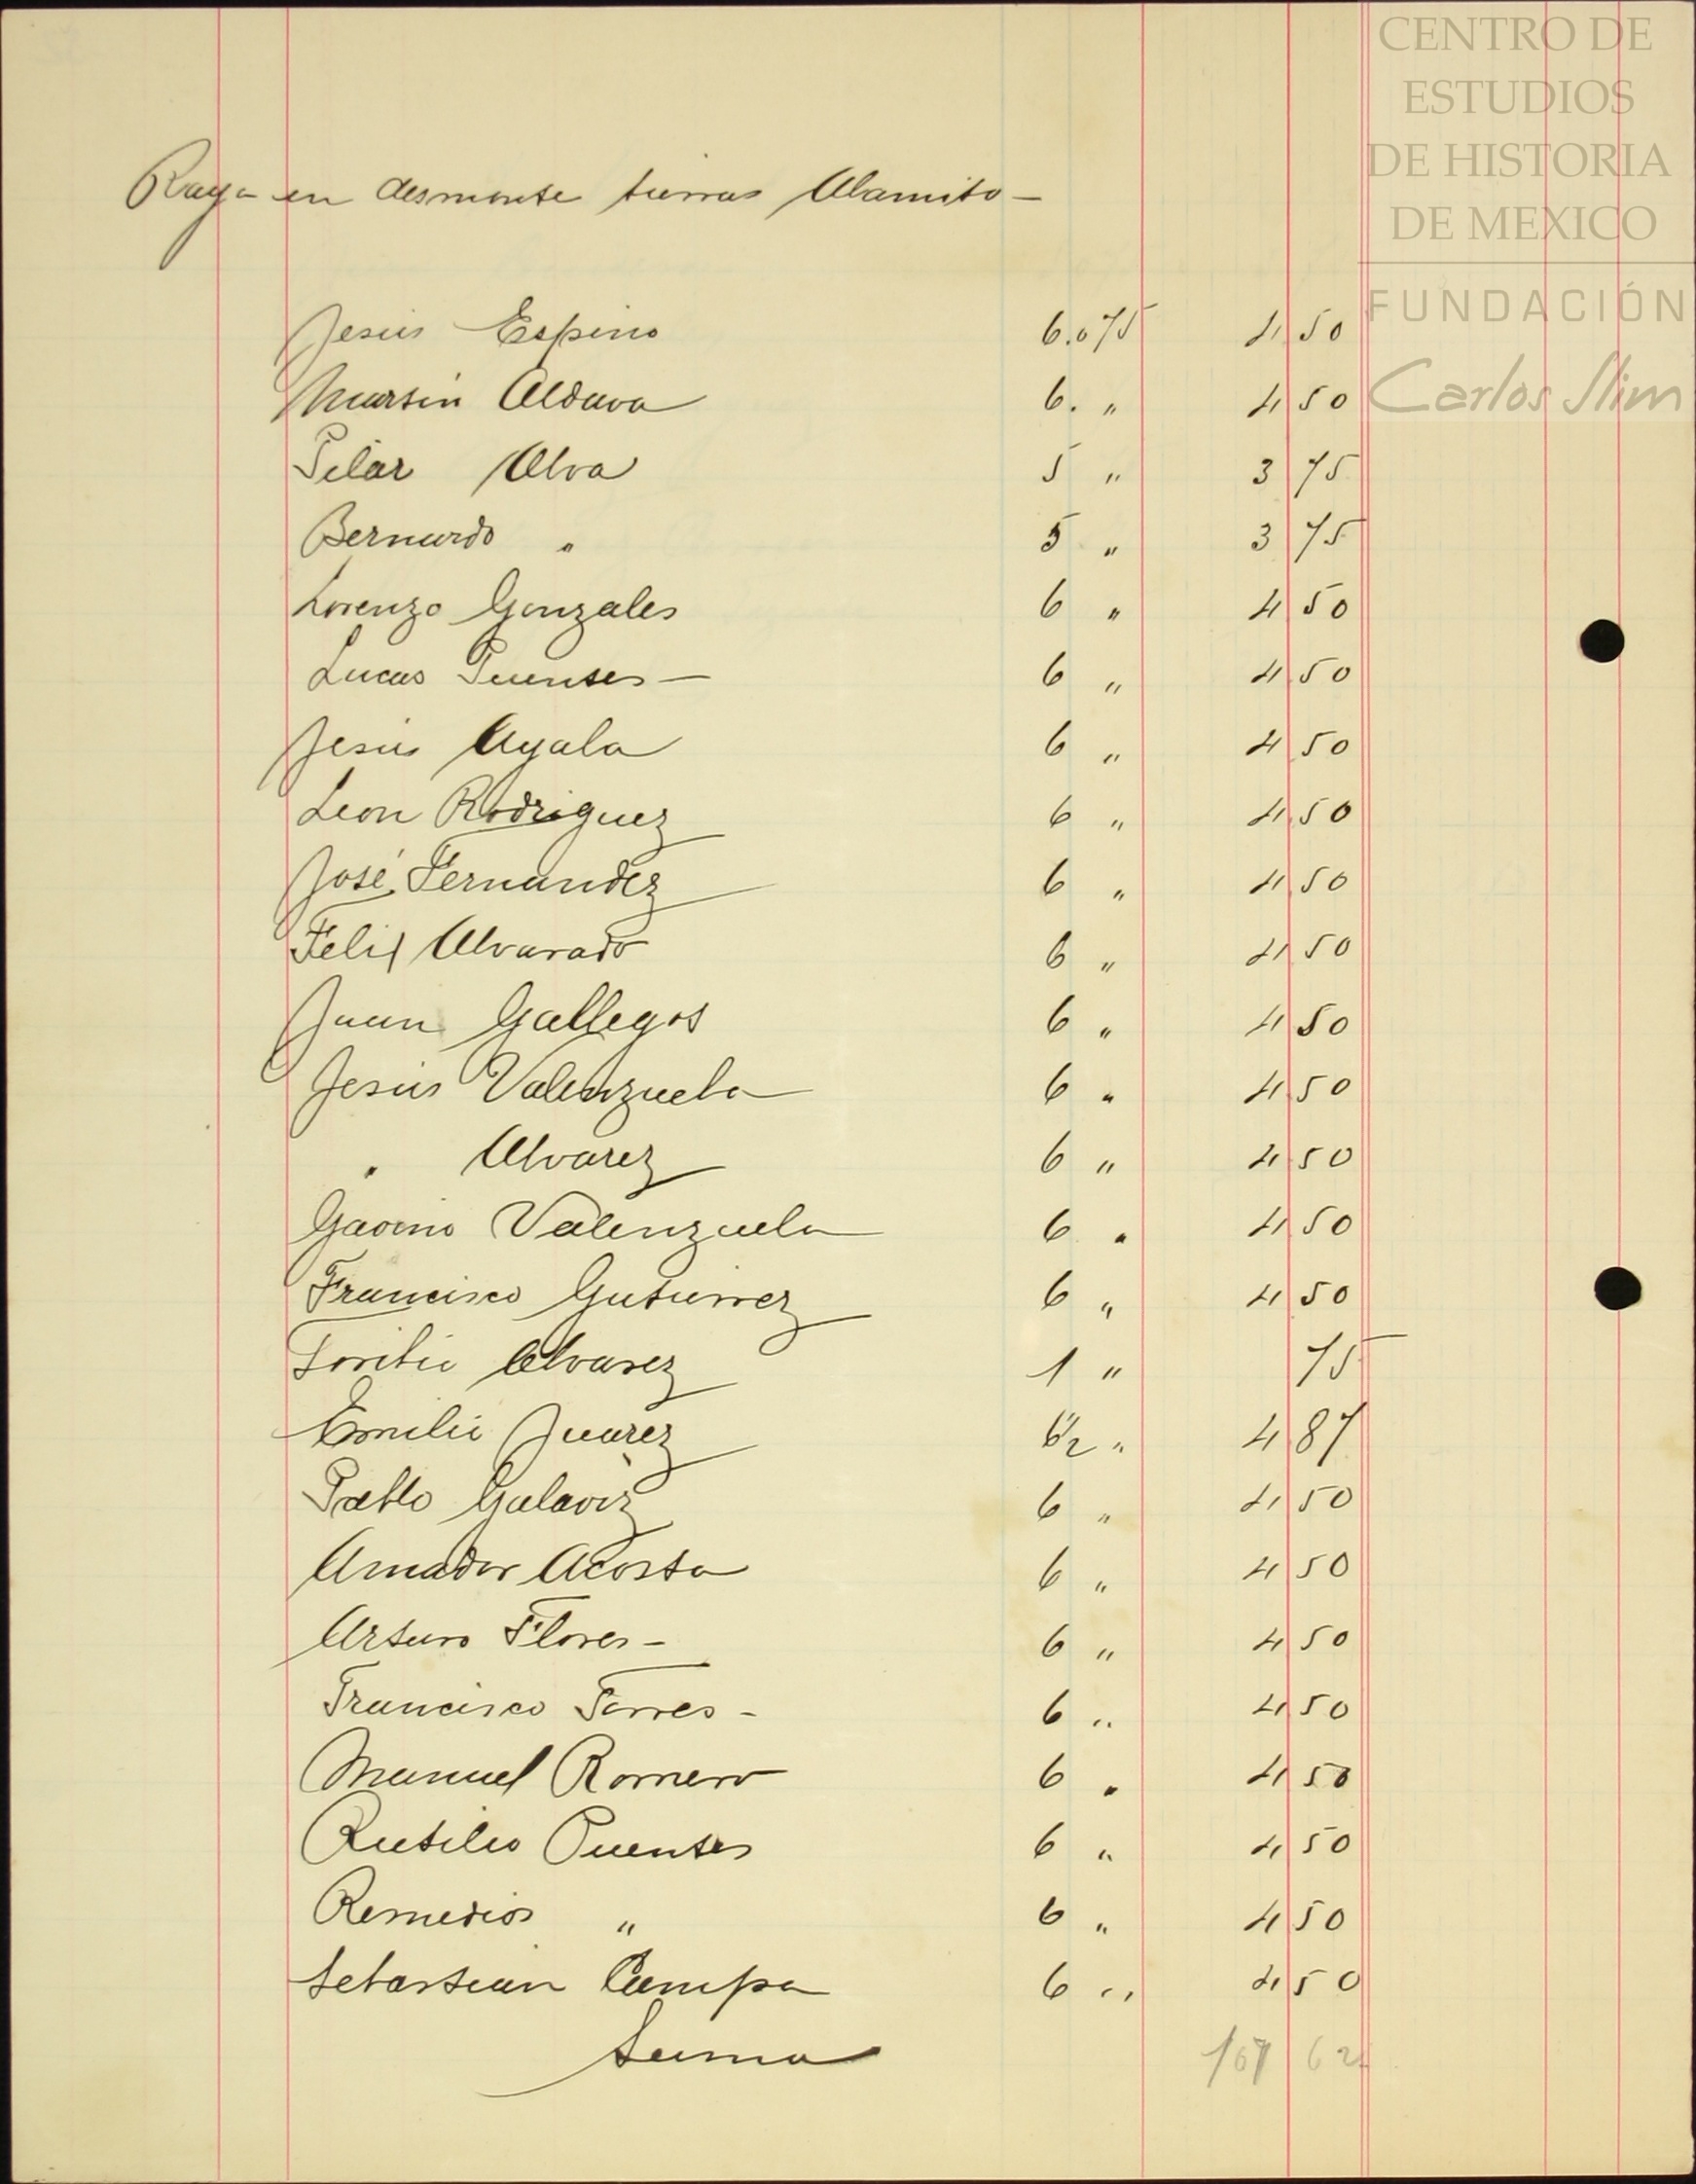 CENTRO DE
ESTUDIOS
DE HISTORIA
DE MEXICO
FUNDACIÓN
Carlos Slim
Raya en desmonte tierras Alamito —
Jesús Espino 6.075 4 50
Martin Aldava 6. " 4 50
Pilar Alva 5 " 3 75
Bernardo " 5 " 3 75
Lorenzo Gonzales 6 " 4 50
Lucas Puentes — 6 " 4 50
Jesús Ayala 6 " 4 50
Leon Rodriguez 6 " 4 50
José Fernandez 6 " 4 50
Felix Alvarado 6 " 4 50
Juan Gallegos 6 " 4 50
Jesús Valenzuela 6 " 4 50
" Alvarez 6 " 4 50
Gavino Valenzuela 6 " 4 50
Francisco Gutierrez 6 " 4 50
Toribio Alvarez 1 " 75
Emilio Juarez 6½ " 4 87
Pablo Galaviz 6 " 4 50
Amador Acosta 6 " 4 50
Arturo Flores - 6 " 4 50
Francisco Torres - 6 " 4 50
Manuel Romero 6 " 4 50
Rutilio Puentes 6 " 4 50
Remedios " 6 " 4 50
Sebastian Campa 6 " 4 50
Suma 107 62